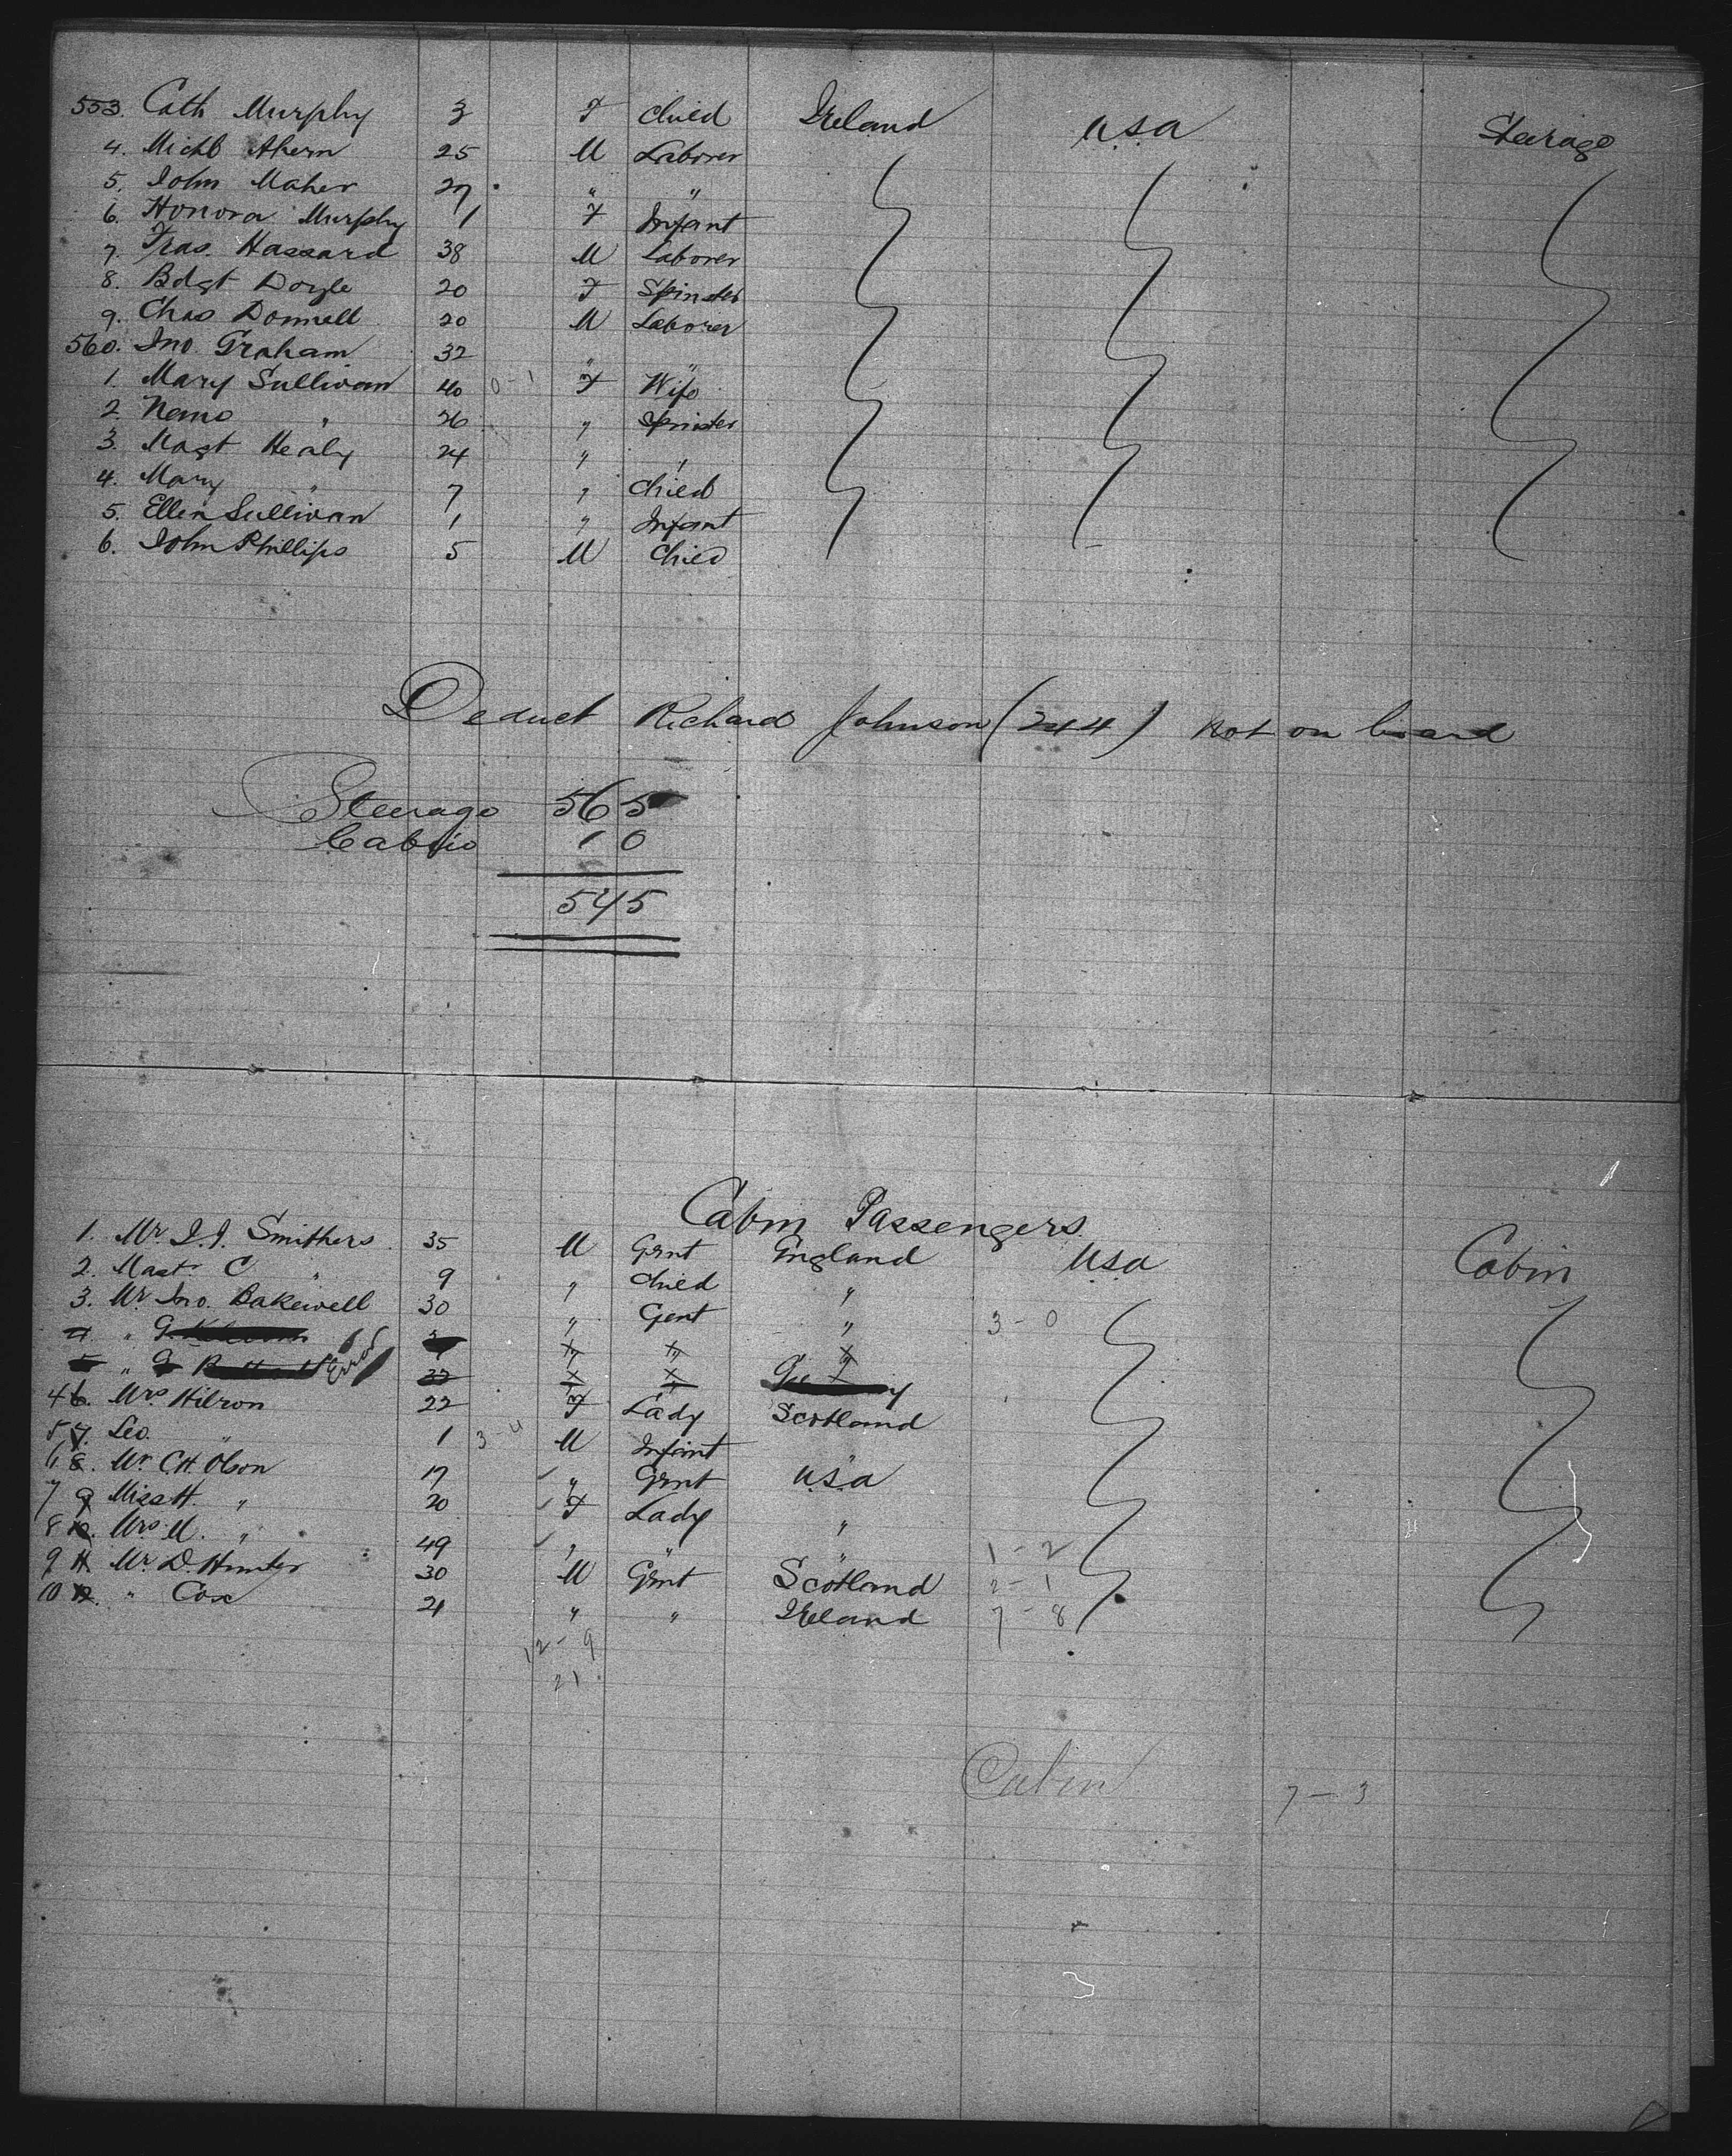 553. Cath Murphy 3 F Child Ireland U.S.A Steerage
4. Michl Ahern 25 M Laborer
5. John Maher 27 " "
6. Honora Murphy 1 F Infant
7. Fras. Hassard 38 M Laborer
8. Bdgt Doyle 20 F Spinster
9. Chas Donnell 20 M Laborer
560. Jno. Graham 32 " "
1. Mary Sullivan 40 0-1 F Wife
2. " 26 " Spinster
3. Magt Healy 24 " "
4. Mary " 7 " Child
5. Ellen Sullivan 1 " Infant
6. John Phillips 5 M Child
Deduct Richard Johnson (244) not on board
Steerage 565
Cabin 10
545
Cabin Passengers
1. Mr. J.J. Smithers 35 M Gent England U.S.A Cabin
2. Mast. C " 9 " Child "
3. Mr Jno. Bakewell 30 " Gent " 3-0
4 " G
5 " Error 32
4 6. Mrs. Hilron 22 F Lady Scotland
5 7. Leo. " 1 3-4 M Infant "
6 8. Mr. C.H. Olson 17 " Gent U.S.A
7 9 Miss H. " 20 F Lady "
8 10. Mrs. M. " 49 " " " 1-2
9 11 Mr. D. Hunter 30 M Gent Scotland 2-1
10 12. " Cox 21 " " Ireland 7-8
12-9
21
Cabin 7-3